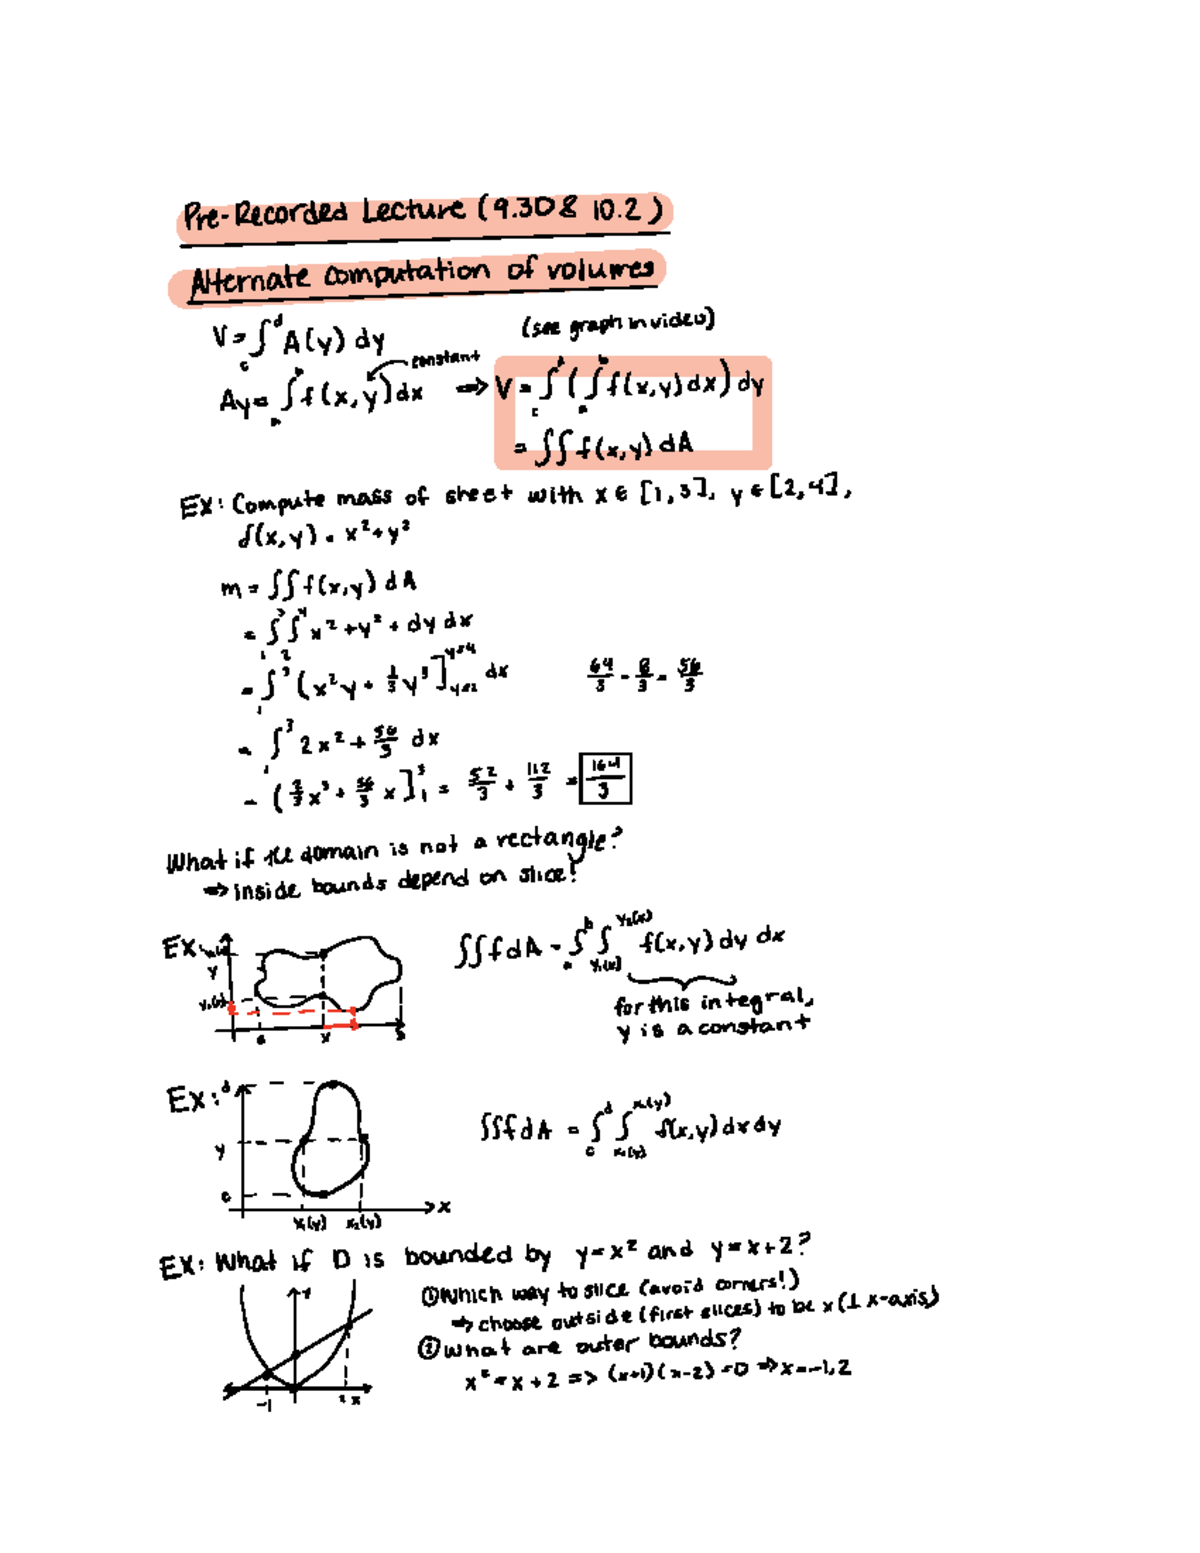 Pre-Recorded Lecture (9.30 & 10.2)
Alternate computation of volumes
V = ∫_c^d A(y) dy
(see graph in video)
Ay = ∫_a^b f(x,y) dx
constant
=> V = ∫_c^d (∫_a^b f(x,y) dx) dy
= ∫∫ f(x,y) dA
EX: Compute mass of sheet with x ∈ [1,3], y ∈ [2,4],
δ(x,y) = x² + y²
m = ∫∫ f(x,y) dA
= ∫_1^3 ∫_2^4 x² + y² + dy dx
= ∫_1^3 (x²y + 1/3 y³]_{y=2}^{y=4} dx
64/3 - 8/3 = 56/3
= ∫_1^3 2x² + 56/3 dx
= (2/3 x³ + 56/3 x]_1^3 = 52/3 + 112/3 = 164/3
What if the domain is not a rectangle?
=> inside bounds depend on slice!
EX:
y
a
x
b
∫∫ f dA = ∫_a^b ∫_{y₁(x)}^{y₂(x)} f(x,y) dy dx
for this integral,
y is a constant
EX:
d
y
c
x₁(y) x₂(y)
x
∫∫ f dA = ∫_c^d ∫_{x₁(y)}^{x₂(y)} f(x,y) dx dy
EX: What if D is bounded by y = x² and y = x + 2?
y
-1
2 x
① Which way to slice (avoid corners!)
=> choose outside (first slices) to be x (⊥ x-axis)
② What are outer bounds?
x² = x + 2 => (x+1)(x-2) = 0 => x = -1, 2